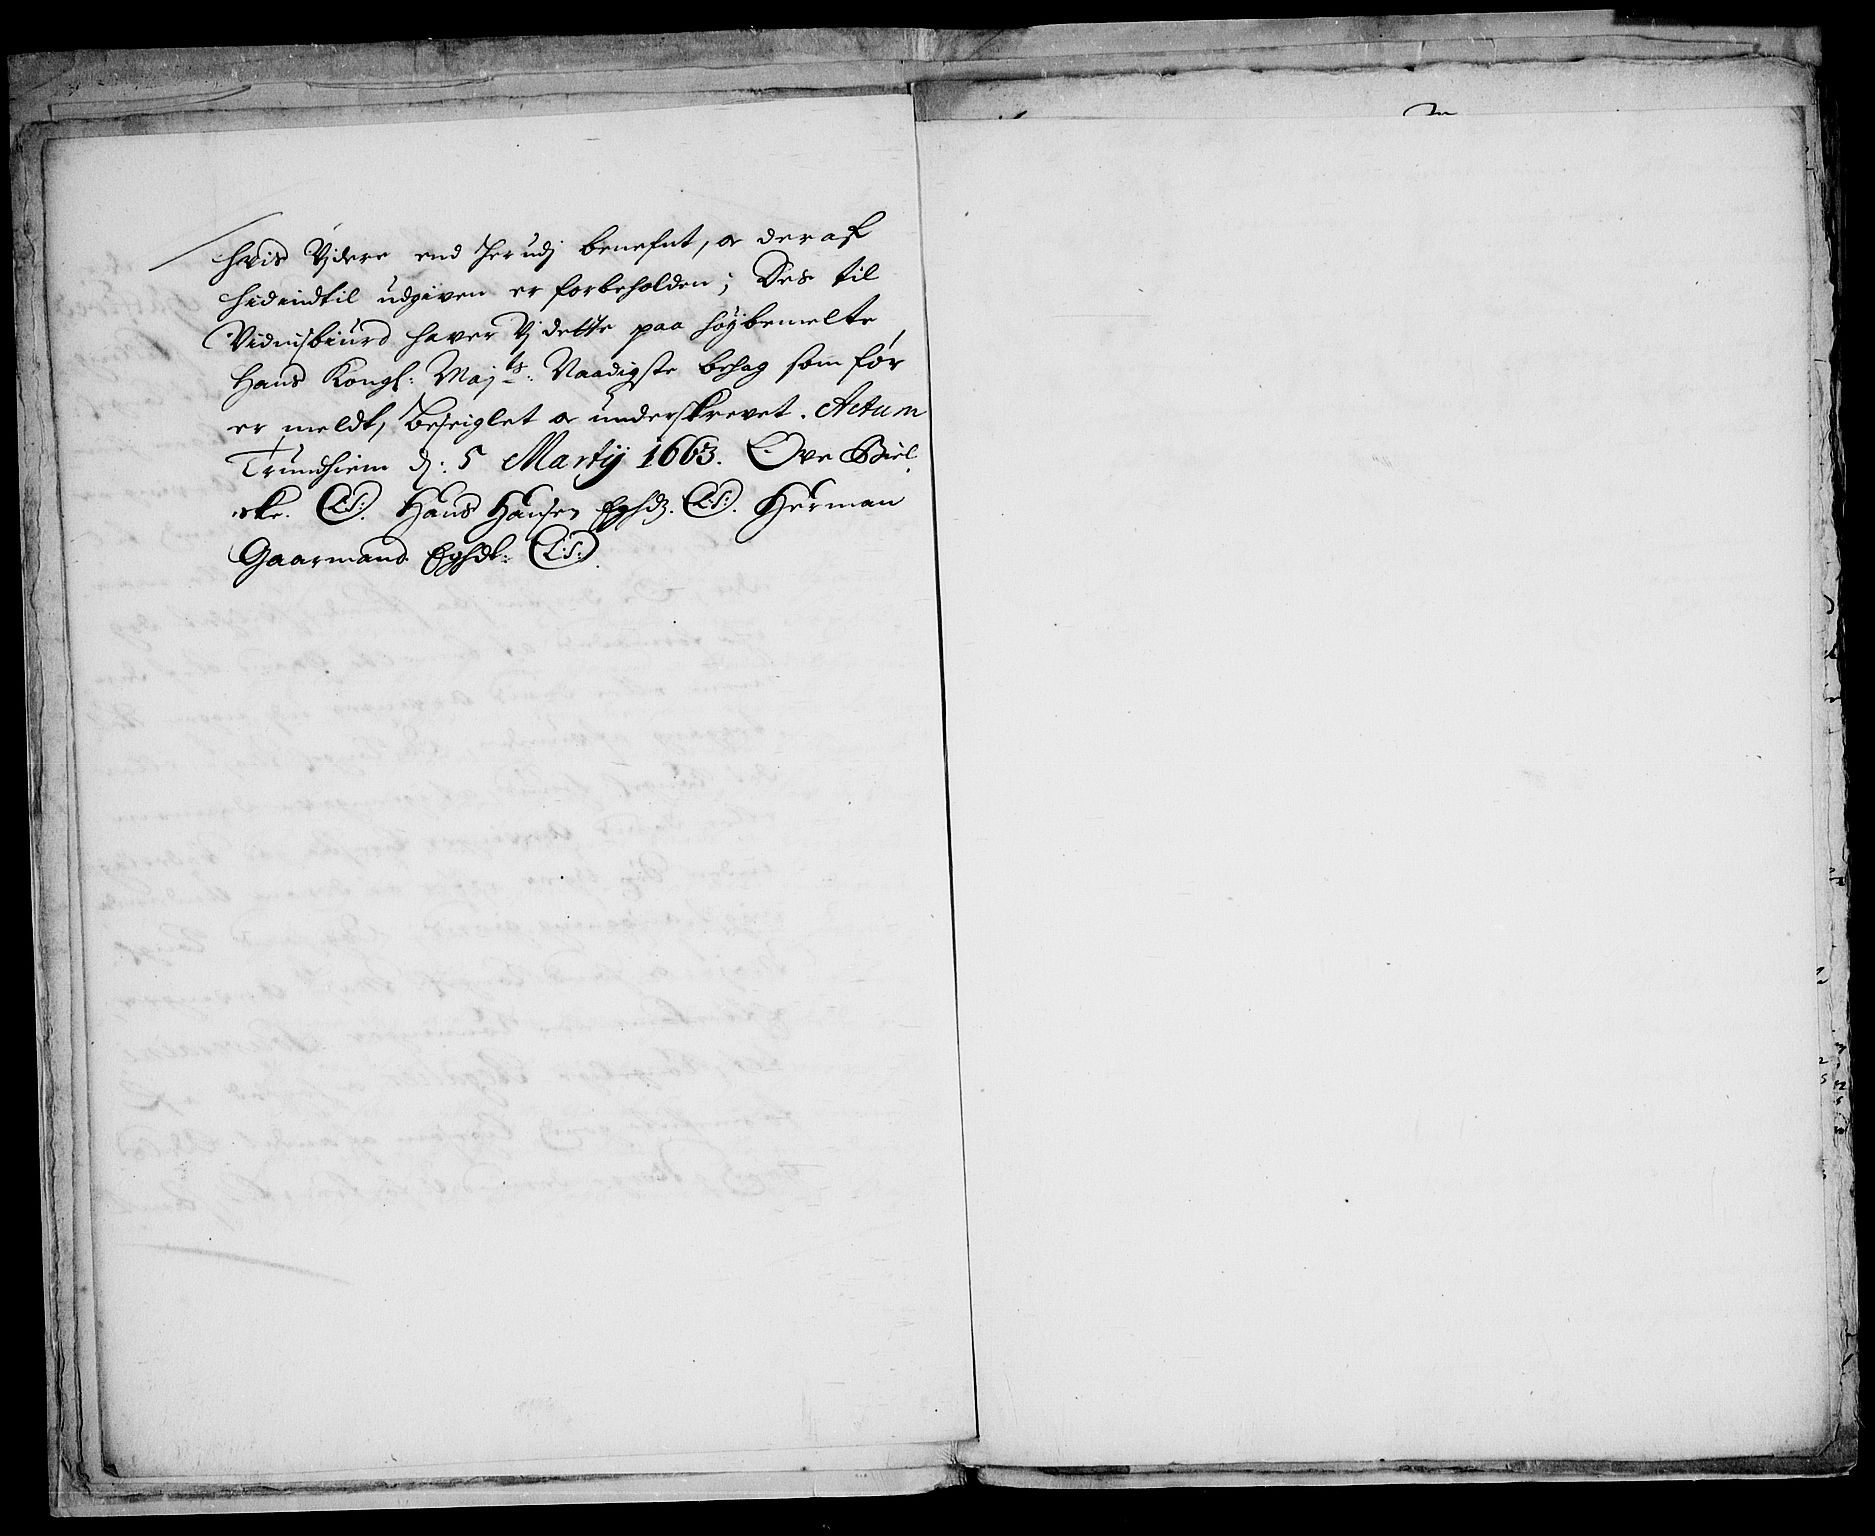 hvis Vjdere end herudj benefnt, or deraf
hidindtil udgiven er forbeholden; Des til
Vidnisbiurd haver Vj dette paa høybemelte
Hans Kongl: Maj:ts: Naadigste behag som før
er meldt, Beseiglet or underskrevet. Actum
Trundhiem dj: 5 Martij 1663. Ove Biel,
ske. (L:S:). Hans Hansen Eghdz. (L:S:). Herman
Gaarmand Eghdt: (L:S:).